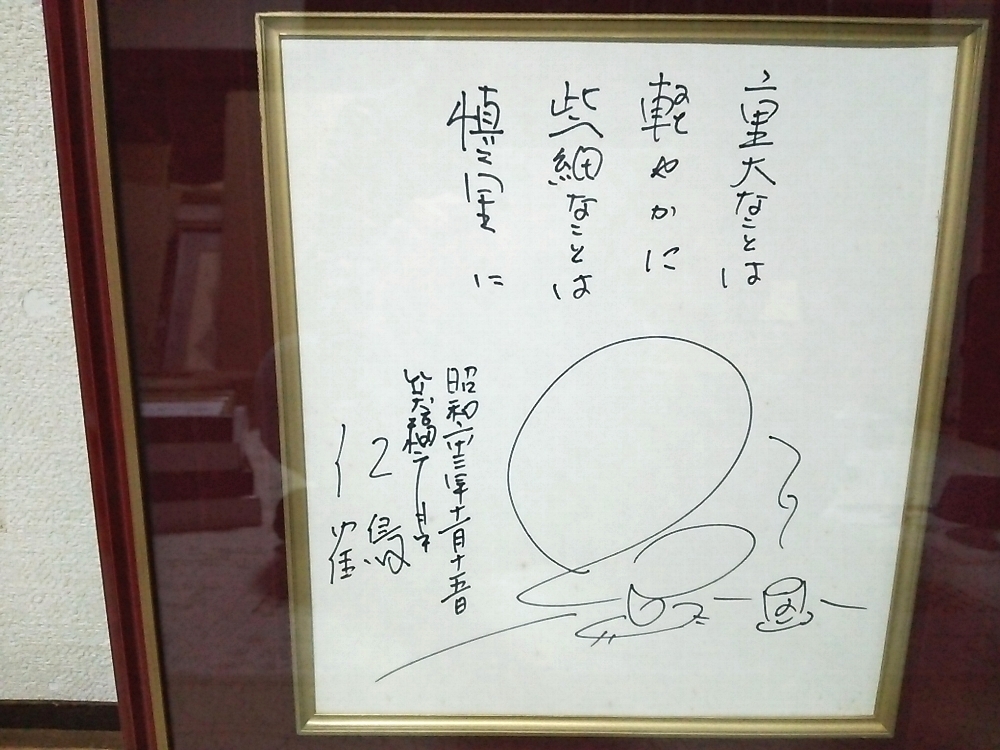 重大なことは
軽やかに
些細なことは
慎重に
昭和六十三年十一月十五日